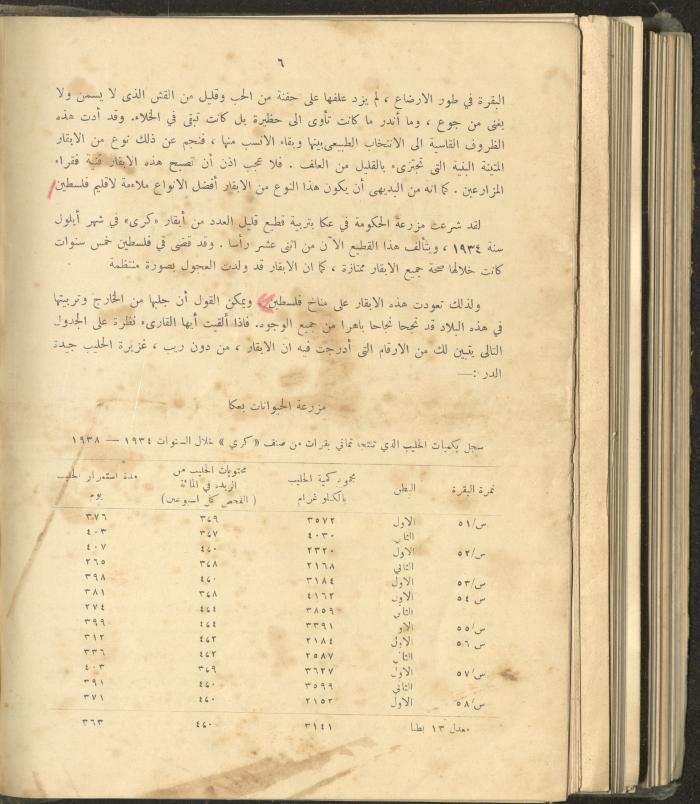 ٦
البقرة في طور الارضاع ، لم يزد علفها على حفنة من الحب وقليل من القش الذى لا يسمن ولا
يغنى من جوع ، وما أندر ما كانت تأوى الى حظيرة بل كانت تبقى في الخلاء. وقد أدت هذه
الظروف القاسية الى الانتخاب الطبيعى بينها وبقاء الانسب منها ، فنجم عن ذلك نوع من الابقار
المتينة البنية التى تجتزىء بالقليل من العلف . فلا عجب اذن أن تصبح هذه الابقار قنية فقراء
المزارعين . كما انه من البديهى أن يكون هذا النوع من الابقار أفضل الانواع ملاءمة لاقليم فلسطين
لقد شرعت مزرعة الحكومة في عكا بتربية قطيع قليل العدد من أبقار «كرى» في شهر أيلول
سنة ١٩٣٤ ، ويتألف هذا القطيع الآن من اثنى عشر رأسا . وقد قضى في فلسطين خمس سنوات
كانت خلالها صحة جميع الابقار ممتازة ، كما ان الابقار قد ولدت العجول بصورة منتظمة
ولذلك تعودت هذه الابقار على مناخ فلسطين. ويمكن القول أن جلبها من الخارج وتربيتها
في هذه البلاد قد نجحا نجاحا باهرا من جميع الوجوه. فاذا ألقيت أيها القارىء نظرة على الجدول
التالى يتبين لك من الارقام التى أدرجت فيه ان الابقار ، من دون ريب ، غزيرة الحليب جيدة
الدر :—
مزرعة الحيوانات بعكا
سجل بكميات الحليب الذي تنتجه ثماني بقرات من صنف «كري» خلال السنوات ١٩٣٤ — ١٩٣٨
نمرة البقرة البطن مجموع كمية الحليب بالكيلو غرام محتويات الحليب من الزبدة في المائة (الفحص كل اسبوعين) مدة استمرار الحليب يوم
س/٥١ الاول ٣٥٧٢ ٣٬٩ ٣٧٦
الثاني ٤٠٣٠ ٣٬٧ ٤٠٣
س/٥٢ الاول ٢٣٢٠ ٤٬٠ ٤٠٧
الثاني ٢١٦٨ ٣٬٨ ٢٦٥
س/٥٣ الاول ٣١٨٤ ٤٬٠ ٣٩٨
س ٥٤ الاول ٤١٦٢ ٣٬٨ ٣٨١
الثاني ٣٨٥٩ ٤٬٤ ٢٧٤
س/٥٥ الاو ٣٣٩١ ٤٬٤ ٣٩٩
س ٥٦ الاول ٢١٨٤ ٤٬٢ ٣١٢
الثاني ٢٥٨٧ ٤٬٢ ٣٣٦
س/٥٧ الاول ٣٦٢٧ ٣٬٩ ٤٠٣
الثاني ٣٥٩٩ ٤٬٠ ٣٩١
س/٥٨ الاول ٢١٥٢ ٤٬٠ ٣٧١
معدل ١٣ بطنا ٣١٤١ ٤٬٠ ٣٦٣